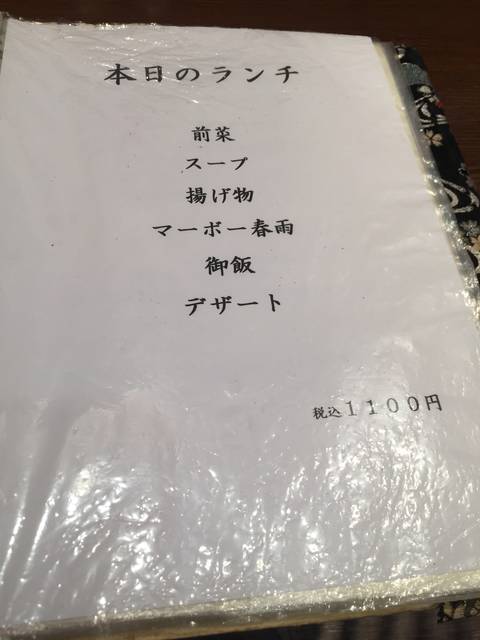 本日のランチ
前菜
スープ
揚げ物
マーボー春雨
御飯
デザート
税込１１００円